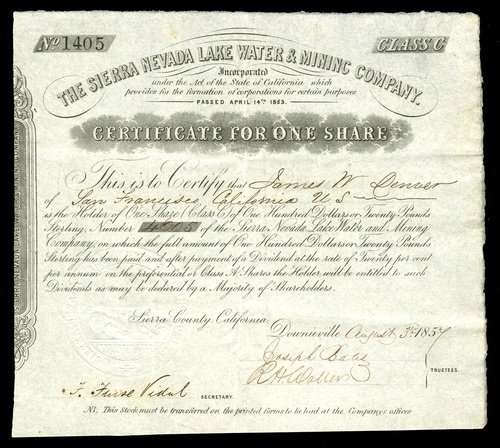 No 1405
CLASS C
THE SIERRA NEVADA LAKE WATER & MINING COMPANY.
Incorporated
under the Act of the State of California which
provides for the formation of corporations for certain purposes
PASSED APRIL 14TH 1853.
CERTIFICATE FOR ONE SHARE
This is to Certify that James W Denver
of San Francisco California U S
is the Holder of One Share (Class C) of One Hundred Dollars or Twenty Pounds
Sterling, Number 4205 of the Sierra Nevada Lake Water and Mining
Company, on which the full amount of One Hundred Dollars or Twenty Pounds
Sterling has been paid and after payment of a Dividend at the rate of Twenty per cent
per annum on the preferential or Class A Shares the Holder will be entitled to such
Dividends as may be declared by a Majority of Shareholders.
Sierra County, California.
Downieville August 3rd 1857
Joseph
TRUSTEES.
SECRETARY.
NB. This Stock must be transferred on the printed forms to be had at the Company's offices